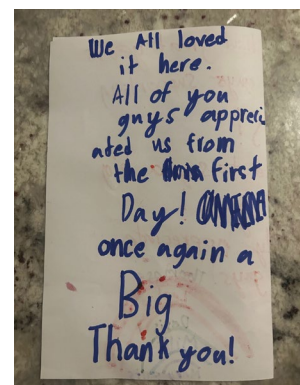 We All loved
it here.
All of you
guys appreci
ated us from
the first
Day!
once again a
Big
Thank you!